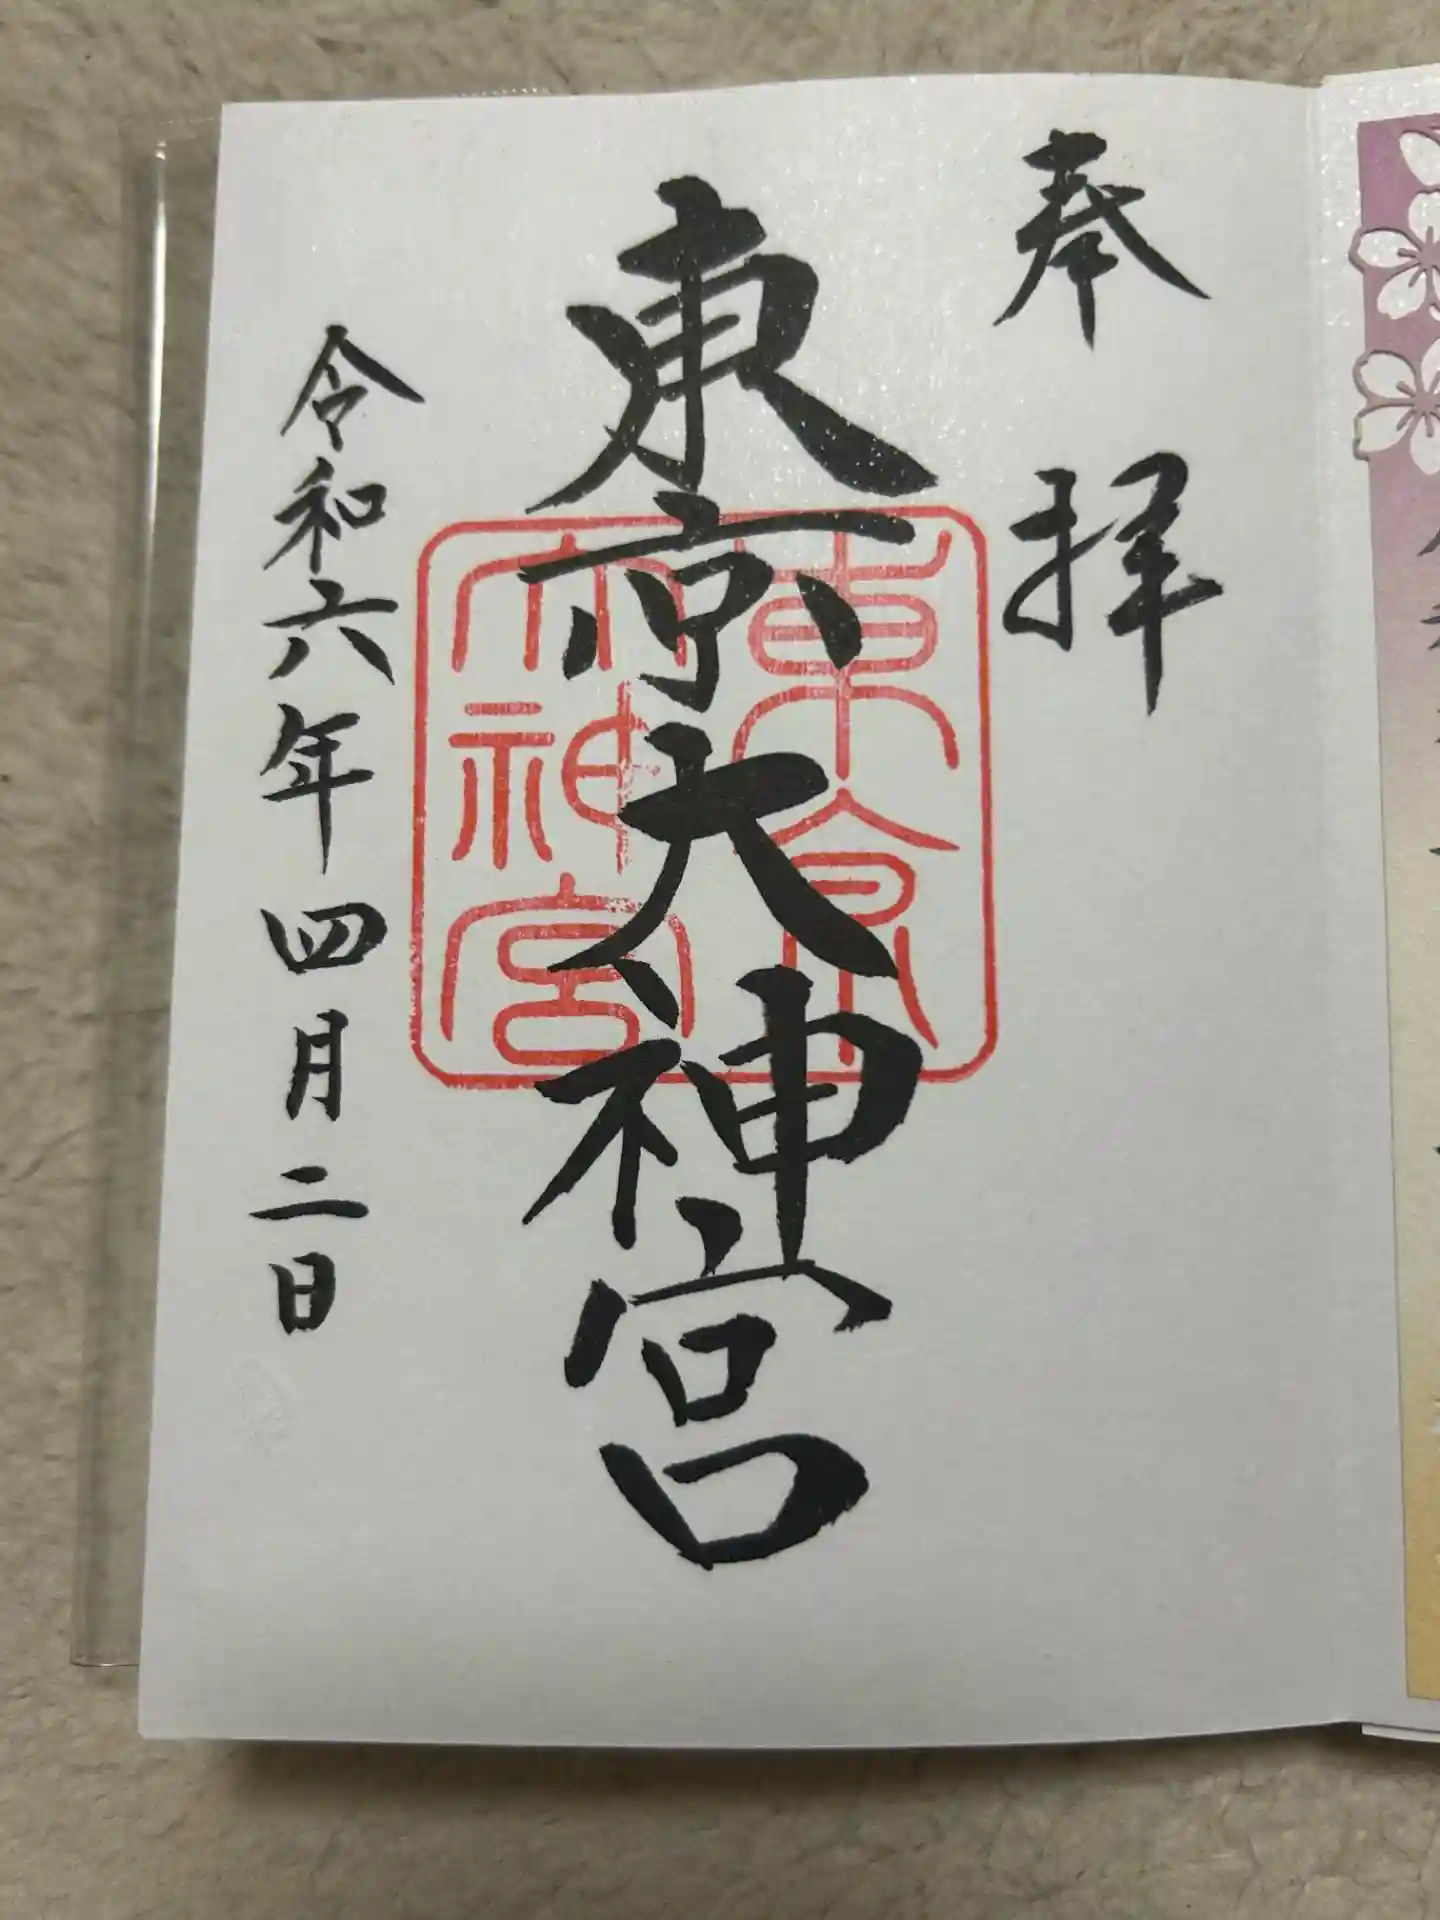 奉拝
東京大神宮
東京
大神宮
令和六年四月二日